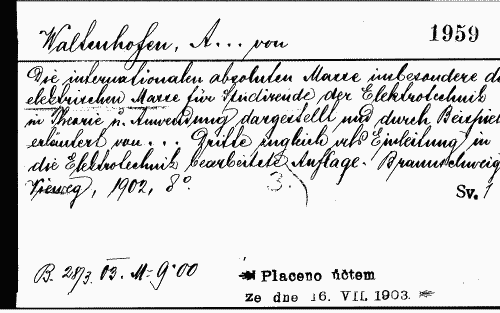 Waltenhofen, A... von
1959
Die internationalen absoluten Masse insbesondere d
elektrischen Masse für Studirende der Elektrotechnik
in Theorie u. Anwendung dargestellt und durch Beispiel
erläutert von... Dritte zugleich als Einleitung in
die Elektrotechnik bearbeitete Auflage. Braunschweig
Vieweg, 1902, 8° 3.
Sv. 1
B. 28/3. 03. M. 9·00
Placeno účtem
ze dne 16. VII. 1903.